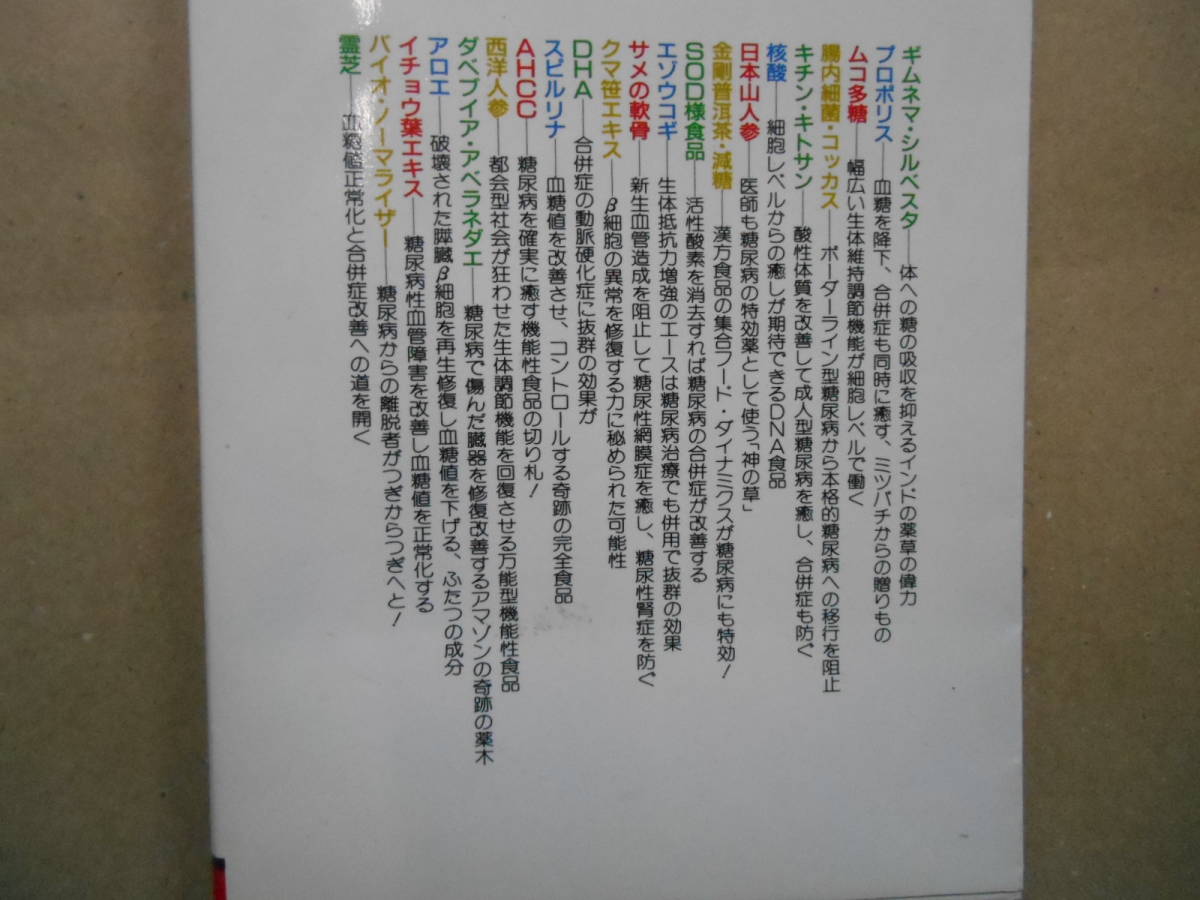 ギムネマ・シルベスタ──体への糖の吸収を抑えるインドの薬草の偉力
プロポリス──血糖を降下、合併症も同時に癒す、ミツバチからの贈りもの
ムコ多糖──幅広い生体維持調節機能が細胞レベルで働く
腸内細菌・コッカス──ボーダーライン型糖尿病から本格的糖尿病への移行を阻止
キチン・キトサン──酸性体質を改善して成人型糖尿病を癒し、合併症も防ぐ
核酸──細胞レベルからの癒しが期待できるDNA食品
日本山人参──医師も糖尿病の特効薬として使う「神の草」
金剛普洱茶・減糖──漢方食品の集合フード・ダイナミクスが糖尿病にも特効！
SOD様食品──活性酸素を消去すれば糖尿病の合併症が改善する
エゾウコギ──生体抵抗力増強のエースは糖尿病治療でも併用で抜群の効果
サメの軟骨──新生血管造成を阻止して糖尿性網膜症を癒し、糖尿性腎症を防ぐ
クマ笹エキス──β細胞の異常を修復する力に秘められた可能性
DHA──合併症の動脈硬化症に抜群の効果が
スピルリナ──血糖値を改善させ、コントロールする奇跡の完全食品
AHCC──糖尿病を確実に癒す機能性食品の切り札！
西洋人参──都会型社会が狂わせた生体調節機能を回復させる万能型機能性食品
タベブイア・アベラネダエ──糖尿病で傷んだ臓器を修復改善するアマゾンの奇跡の薬木
アロエ──破壊された膵臓β細胞を再生修復し血糖値を下げる、ふたつの成分
イチョウ葉エキス──糖尿病性血管障害を改善し血糖値を正常化する
バイオ・ノーマライザー──糖尿病からの離脱者がつぎからつぎへと！
霊芝──血糖値正常化と合併症改善への道を開く